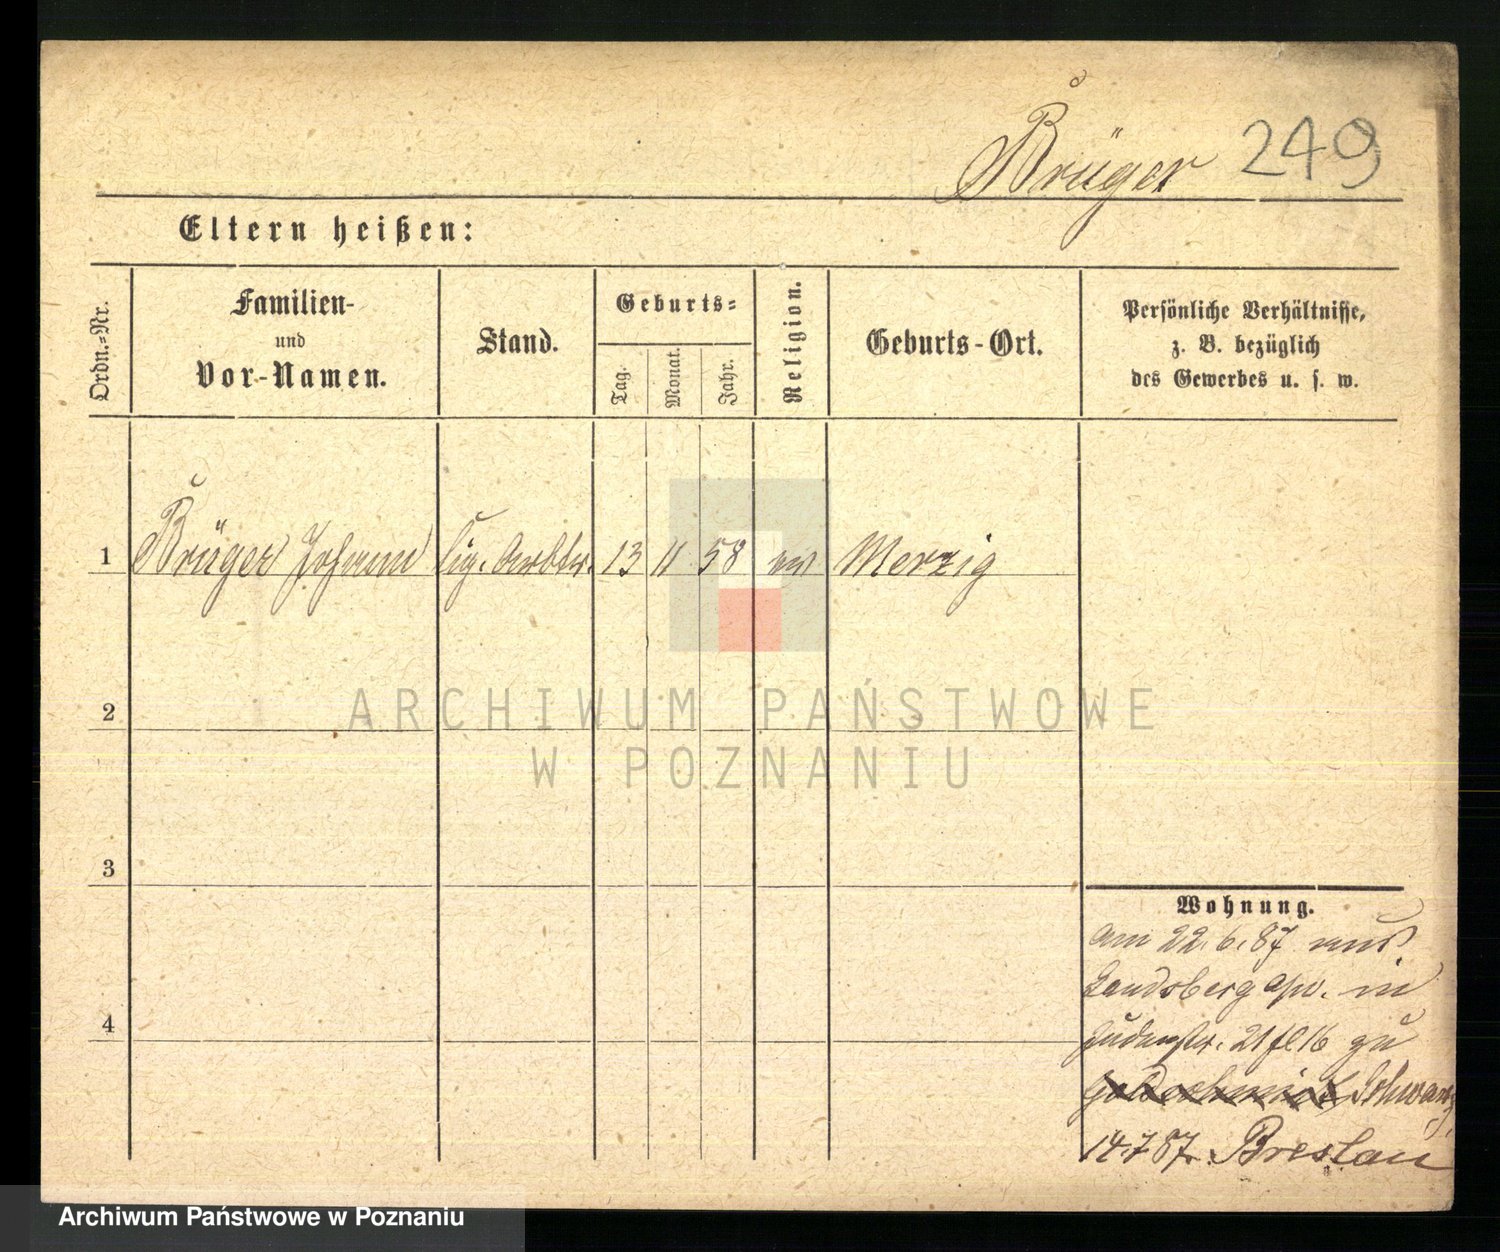 Brüger 249
Eltern heißen:
Ordn.-Nr.
Familien-
und
Vor-Namen.
Stand.
Geburts-
Tag.
Monat.
Jahr.
Religion.
Geburts-Ort.
Persönliche Verhältnisse,
z. B. bezüglich
des Gewerbes u. s. w.
1 Brüger Johann Cig. Arbtr. 13 11 58 ev Merzig
2
3
4
Wohnung.
am 22.6.87 aus
Landsberg a/w. in
Judenstr. 21 fl 16 zu
Goldschmidt Schwarz
14.7.87. Breslau
ARCHIWUM PAŃSTWOWE
W POZNANIU
Archiwum Państwowe w Poznaniu